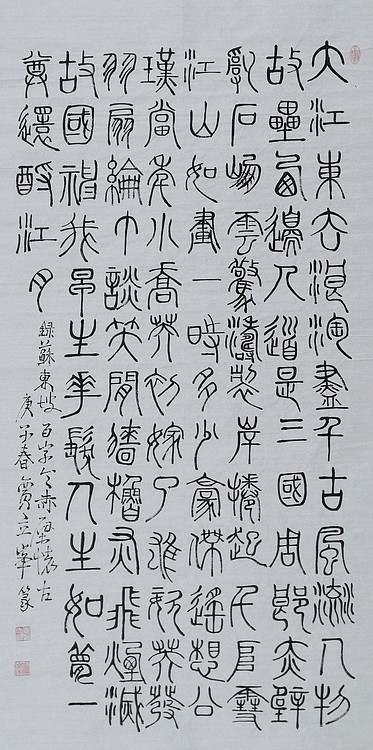 大江東去浪淘盡千古風流人物
故壘西邊人道是三國周郎赤壁
亂石崩雲驚濤裂岸捲起千堆雪
江山如畫一時多少豪傑遙想公
瑾當年小喬初嫁了雄姿英發
羽扇綸巾談笑間牆櫓灰飛煙滅
故國神我早生華髮人生如夢一
尊還酹江月
錄蘇東坡百字令赤壁懷古
庚子春賈立峯篆